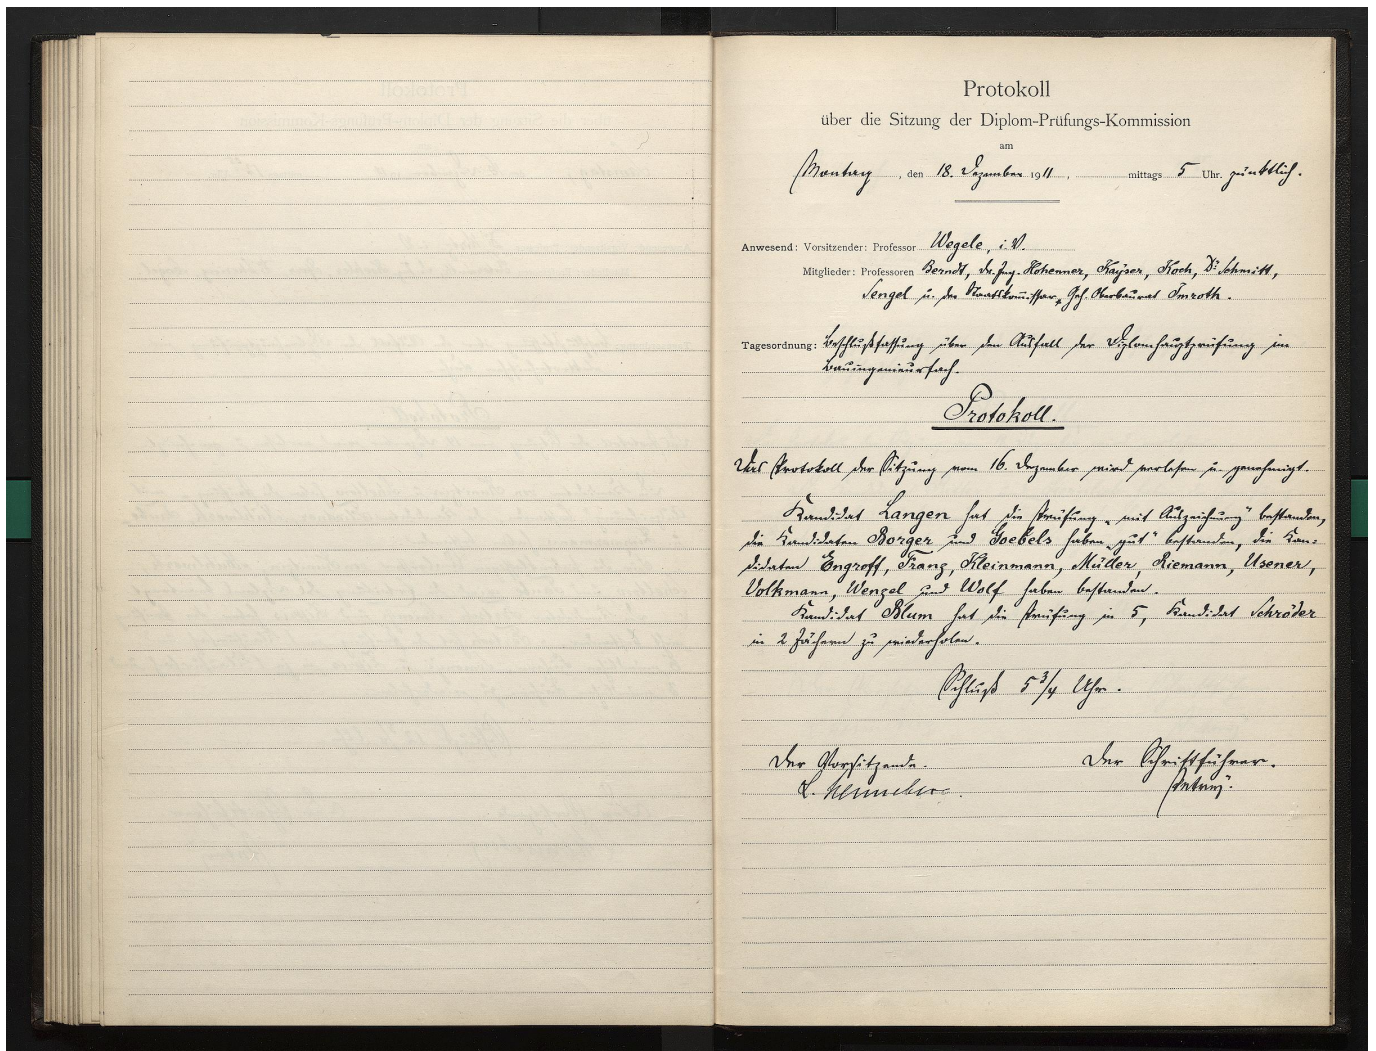 Protokoll
über die Sitzung der Diplom-Prüfungs-Kommission
am
Montag, den 18. Dezember 1911, mittags 5 Uhr. pünktlich.
Anwesend: Vorsitzender: Professor Wegele, i. V.
Mitglieder: Professoren Berndt, Dr. Ing. Hohenner, Kayser, Koch, Dr. Schmitt,
Sengel u. der Staatskom̅issar, Geh. Oberbaurat Imroth.
Tagesordnung: Beschlußfassung über den Ausfall der Diplomhauptprüfung im
Bauingenieurfach.
Protokoll.
Das Protokoll der Sitzung vom 16. Dezember wird verlesen u. genehmigt.
Kandidat Langen hat die Prüfung „mit Auszeichnung" bestanden,
die Kandidaten Borger und Goebels haben „gut" bestanden, die Kan-
didaten Engroff, Franz, Kleinmann, Müller, Riemann, Usener,
Volkmann, Wenzel und Wolf haben bestanden.
Kandidat Blum hat die Prüfung in 5, Kandidat Schröder
in 2 Fächern zu wiederholen.
Schluß 5 3/4 Uhr.
Der Vorsitzende. Der Schriftführer.
L. Henneberg. Petry.